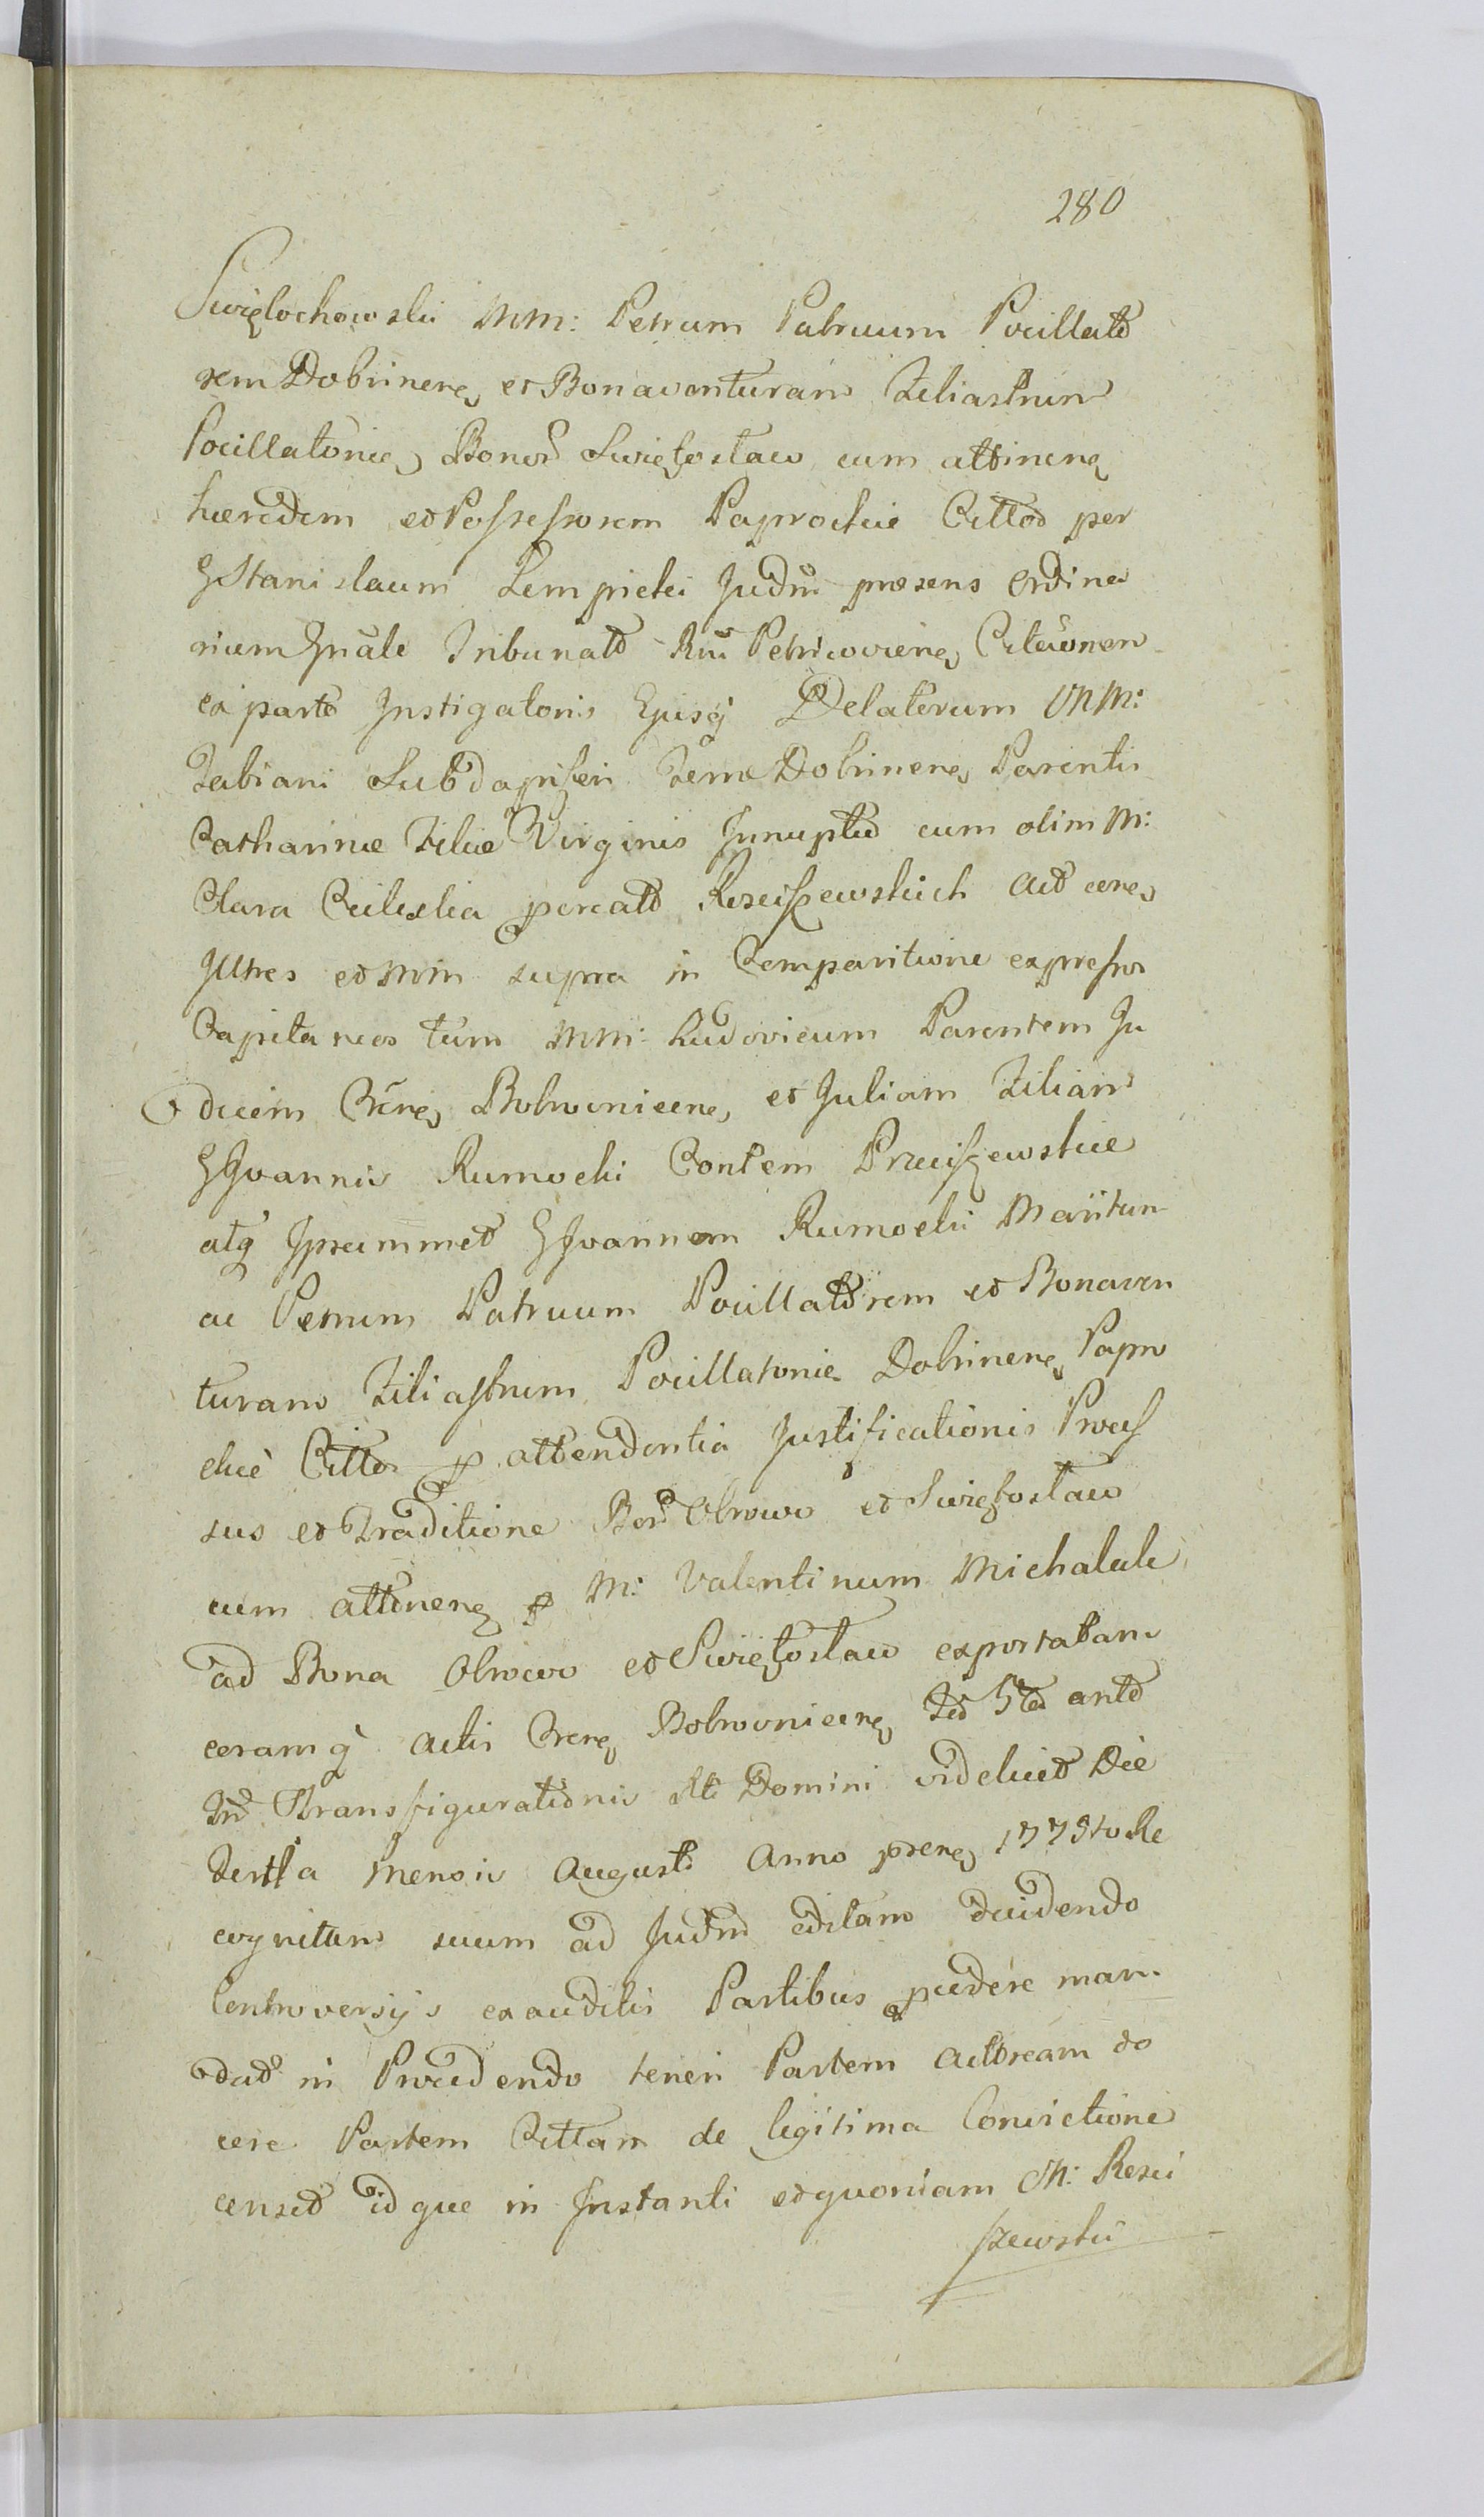 280
Swięlochowski MM: Petrum Patruum Pocillato
rem Dobrinens et Bonaventuram Filiastrum
Pocillatoriæ Bonor Swiętosław cum attinens
hæredem et Possessorem Paprockie Cittos per
G Stanislaum Lempicki Judm præsens Ordina
rium Gnale Tribunats Rni Petricoviens Citaonem
ex parte Instigatoris Ejusq Delatorum MM:
Fabiani Subdapiferi Terræ Dobrinens Parentis
Catharinæ Filiæ Virginis Innuptæ cum olim M:
Clara Cielecka procreats Kosciszewskich ad cens
Illtres et MM supra in Comparitione expressos
Capitaneos tum MM: Ludovicum Parentem Ju
dicem Crens Bobrownicens et Juliam Filiam
G Joannis Rumocki Contem Przeciszewskie
atq Ipsummet G Joannem Rumocki Maritum
ac Petrum Patruum Pocillatorem et Bonaven
turam Filiastrum Pocillatoriæ Dobrinens Papro
ckie Cittos p attendentia Justificationis Proces
sus et Traditione Bonor Obrowo et Swiętosław
cum attinens p M: Valentinum Michalak
ad Bona Obrowo et Swiętosław exportatam
coramq Actis Crens Bobrownicens Fer 5ta ante
Fm Transfigurationis Xti Domini videlicet Die
Tertia Mensis Augusti Anno præns 1775to Re
cognitum suum ad Judm editam decidendo
Controversijs exauditis Partibus pcedere man
dat in Procedendo teneri Partem Actoream do
cere Partem Cittam de legitima Convictione
censet idque in Instanti et quoniam M: Kosci
szewski